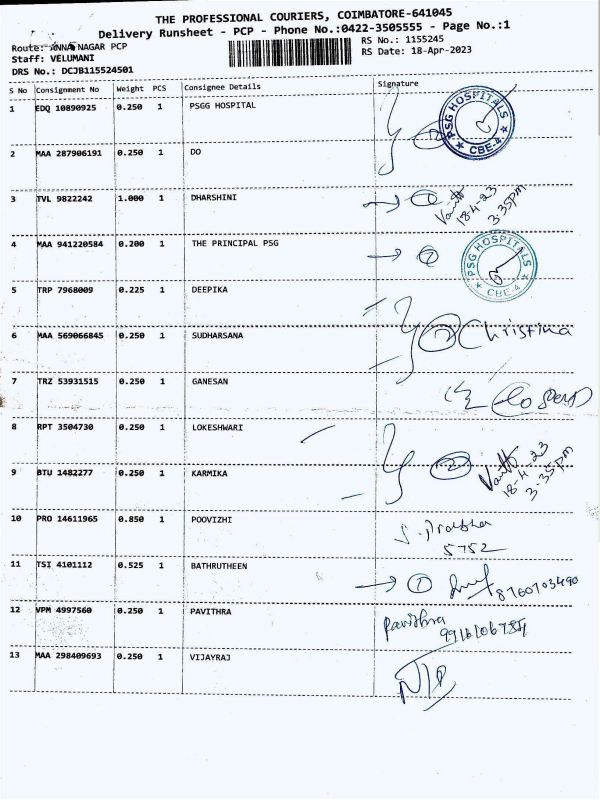 THE PROFESSIONAL COURIERS, COIMBATORE-641045
Delivery Runsheet - PCP - Phone No.:0422-3505555 - Page No.:1
Route: ANNA NAGAR PCP
RS No.: 1155245
Staff: VELUMANI
RS Date: 18-Apr-2023
DRS No.: DCJB115524501
S No Consignment No Weight PCS Consignee Details Signature
1 EDQ 10890925 0.250 1 PSGG HOSPITAL
PSG HOSPITALS
CBE-4
2 MAA 287906191 0.250 1 DO
3 TVL 9822242 1.000 1 DHARSHINI
18-4-23
3.35pm
4 MAA 941220584 0.200 1 THE PRINCIPAL PSG
PSG HOSPITALS
CBE-4
5 TRP 7968009 0.225 1 DEEPIKA
6 MAA 569066845 0.250 1 SUDHARSANA
2 Christina
7 TRZ 53931515 0.250 1 GANESAN
8 RPT 3504730 0.250 1 LOKESHWARI
9 BTU 1482277 0.250 1 KARMIKA
2
18-4-23
3.35pm
10 PRO 14611965 0.850 1 POOVIZHI
S. Prabha
5752
11 TSI 4101112 0.525 1 BATHRUTHEEN
1
8760703490
12 VPM 4997560 0.250 1 PAVITHRA
Pavithra
13 MAA 298409693 0.250 1 VIJAYRAJ